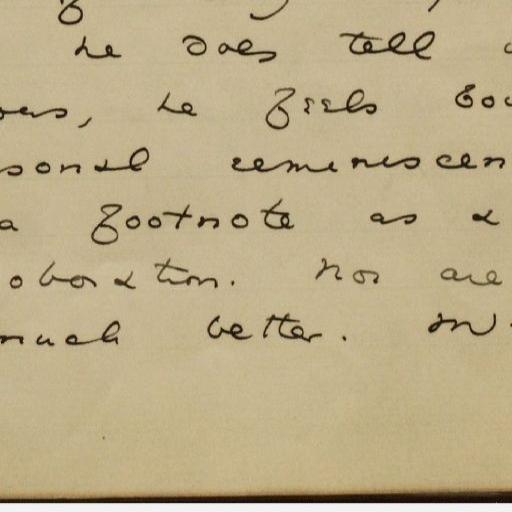 he does tell
, he feels
sonal remeniscen
a footnote as a
oboration. Nor are
much better. M